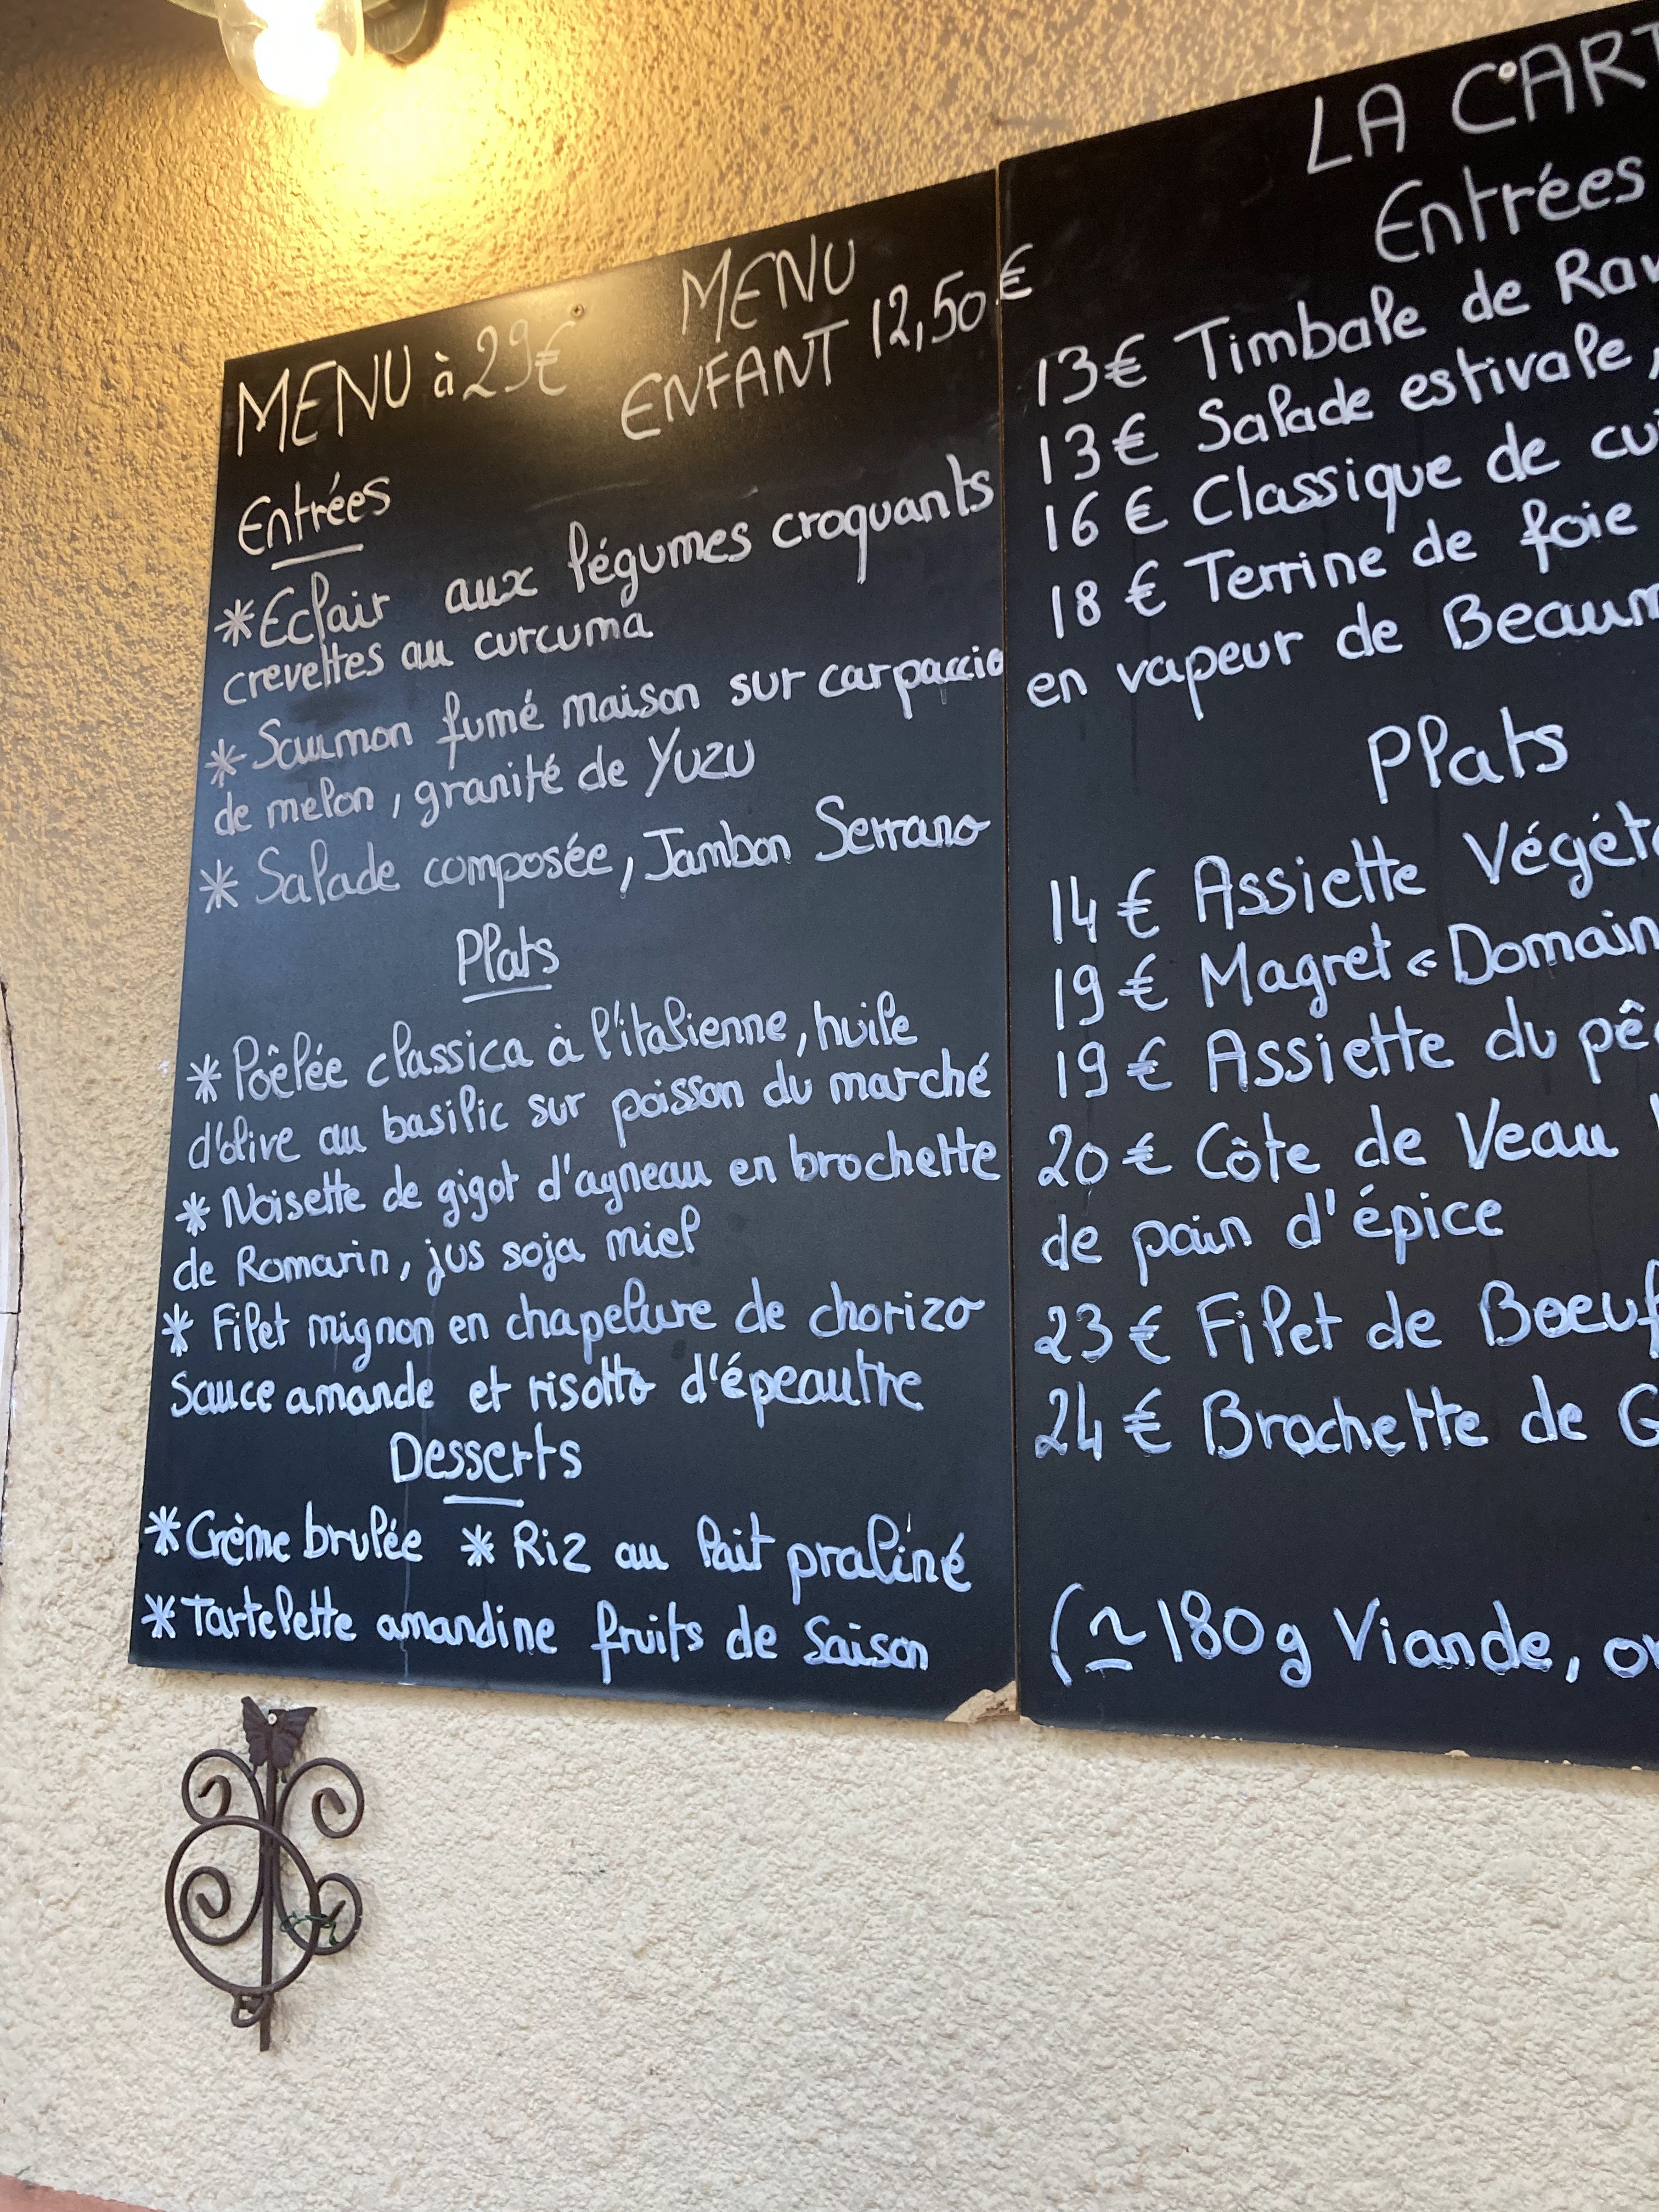 MENU à 29€
MENU
ENFANT 12,50€
Entrées
*Eclair aux légumes croquants
crevettes au curcuma
*Saumon fumé maison sur carpaccio
de melon, granité de Yuzu
*Salade composée, Jambon Serrano
Plats
*Poêlée classica à l'italienne, huile
d'olive au basilic sur poisson du marché
*Noisette de gigot d'agneau en brochette
de Romarin, jus soja miel
*Filet mignon en chapelure de chorizo
Sauce amande et risotto d'épeautre
Desserts
*Crème brulée *Riz au lait praliné
*Tartelette amandine fruits de Saison
LA CART
Entrées
13€ Timbale de Rav
13€ Salade estivale,
16€ Classique de cui
18€ Terrine de foie
en vapeur de Beaum
Plats
14€ Assiette Végét
19€ Magret «Domain
19€ Assiette du pê
20€ Côte de Veau
de pain d'épice
23€ Filet de Boeuf
24€ Brochette de G
(≃180g Viande, o